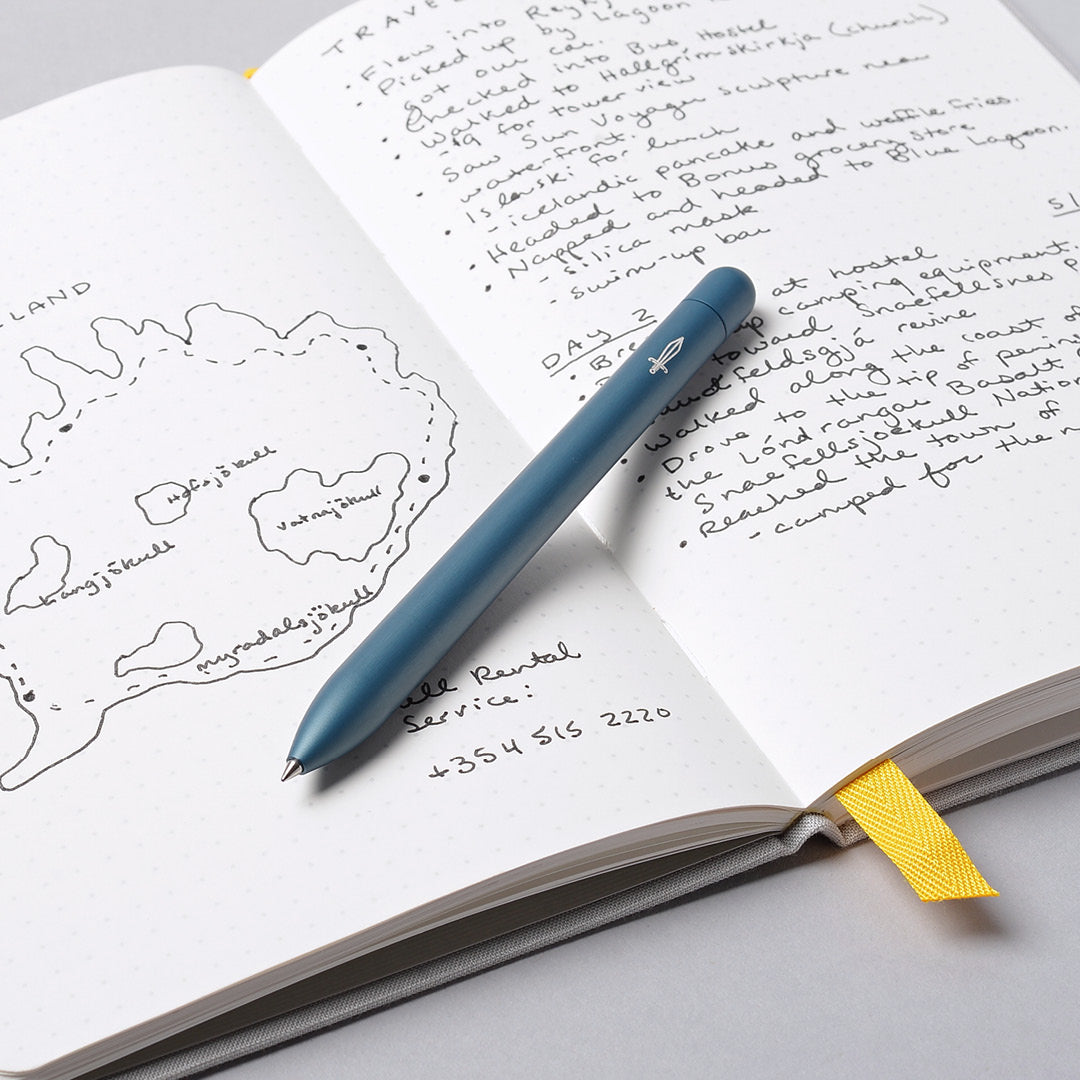 LAND
Hofsjökull
Vatnajökull
Langjökull
myradalsjökull
Rental
Service:
+354 515 2220
TRAVEL
Flew into Reyk
Picked up by Lagoon
got our car.
Checked into Bus Hostel
Walked to Hallgrimskirkja (church)
-$9 for tower view
Saw Sun Voyager sculpture near
waterfront.
Islenski for lunch
-icelandic pancake and waffle fries.
Headed to Bonus grocery store
Napped and headed to Blue Lagoon.
-silica mask
-swim-up bar
DAY 2
at hostel
up camping equipment.
toward Snaefellsnes
feldsgjá revine
Walked along the coast of
Drove to the tip of penin
the Lóndrangar Basalt
Snaefellsjoekull Nation
Reached the town of
-camped for the n